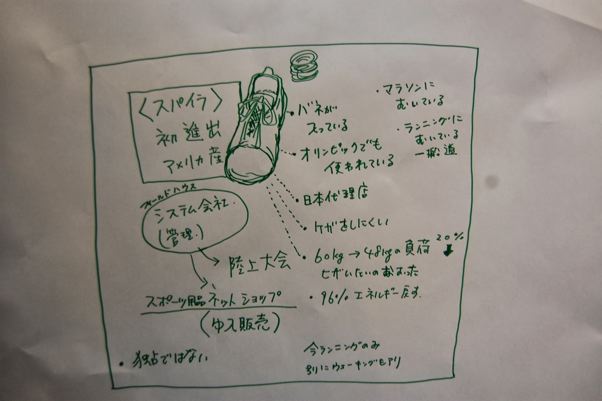 〈スパイラ〉
初進出
アメリカ産
・バネが
入っている
・オリンピックでも
使われている
・日本代理店
・ケガをしにくい
・60kg→48kgの負荷
20%
・96%エネルギー戻す
・マラソンに
むいている
・ランニングに
むいている
ールドハウス
システム会社
(管理)
陸上大会
スポーツ用品ネットショップ
(ゆえ販売)
・独占ではない
今ランニングのみ
別にウォーキングもアリ